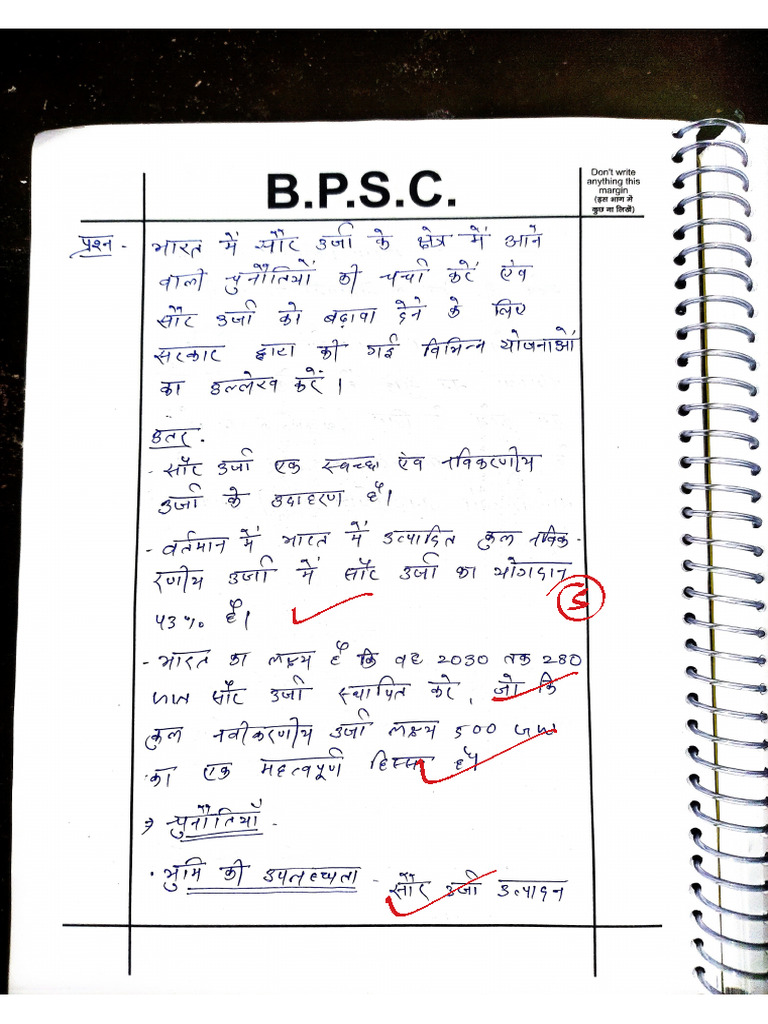 B.P.S.C.
Don't write
anything this
margin
(इस भाग में
कुछ ना लिखें)
प्रश्न - भारत में सौर उर्जा के क्षेत्र में आने
वाली चुनौतियों की चर्चा करें एंव
सौर उर्जा को बढ़ावा देने के लिए
सरकार द्वारा की गई विभिन्न योजनाओं
का उल्लेख करें ।
उतर.
- सौर उर्जा एक स्वच्छ एंव नविकरणीय
उर्जा के उदाहरण है।
- वर्तमान में भारत में उत्पादित कुल नविक-
रणीय उर्जा में सौर उर्जा का योगदान
43% है।
- भारत का लक्ष्य है कि वह 2030 तक 280
सौर उर्जा स्थापित करे, जो कि
कुल नवीकरणीय उर्जा लक्ष्य 500
का एक महत्वपूर्ण हिस्सा है।
→ चुनौतियाँ -
• भुमि की उपलब्धता - सौर उर्जा उत्पादन